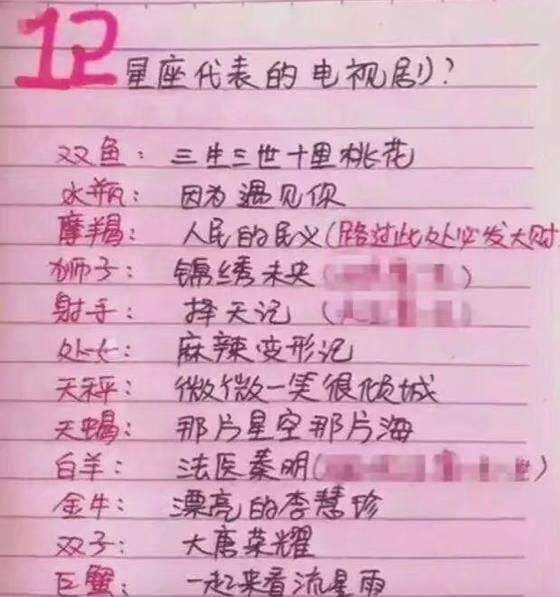 12星座代表的电视剧？
双鱼：三生三世十里桃花
水瓶：因为遇见你
摩羯：人民的民义（路过此处必发大财
狮子：锦绣未央（ ）
射手：择天记（ ）
处女：麻辣变形记
天秤：微微一笑很倾城
天蝎：那片星空那片海
白羊：法医秦明（ ）
金牛：漂亮的李慧珍
双子：大唐荣耀
巨蟹：一起来看流星雨